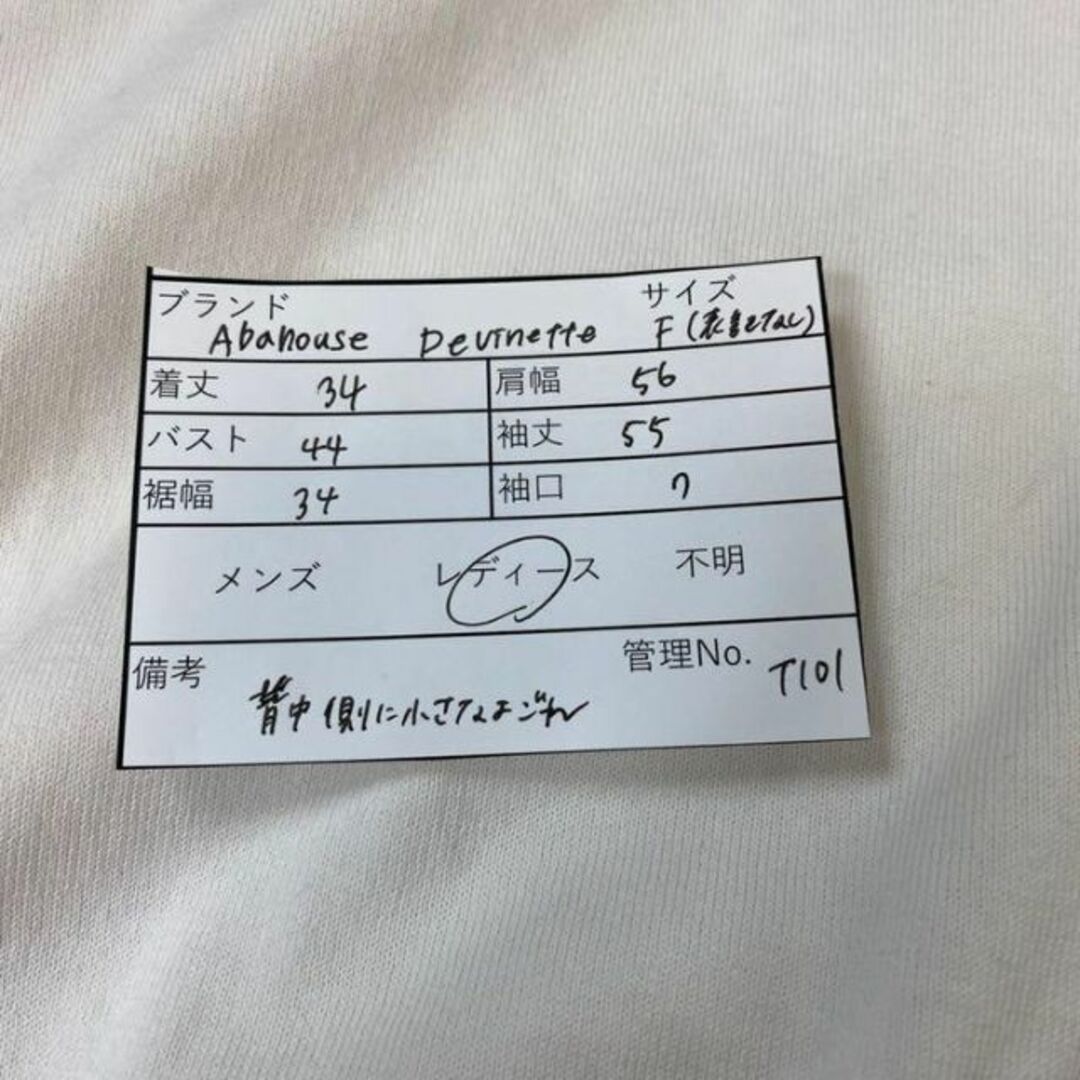 ブランド サイズ
Abahouse Devinette F(表記なし)
着丈 34 肩幅 56
バスト 44 袖丈 55
裾幅 34 袖口 7
メンズ レディース 不明
備考 管理No. T101
背中側に小さなよごれ